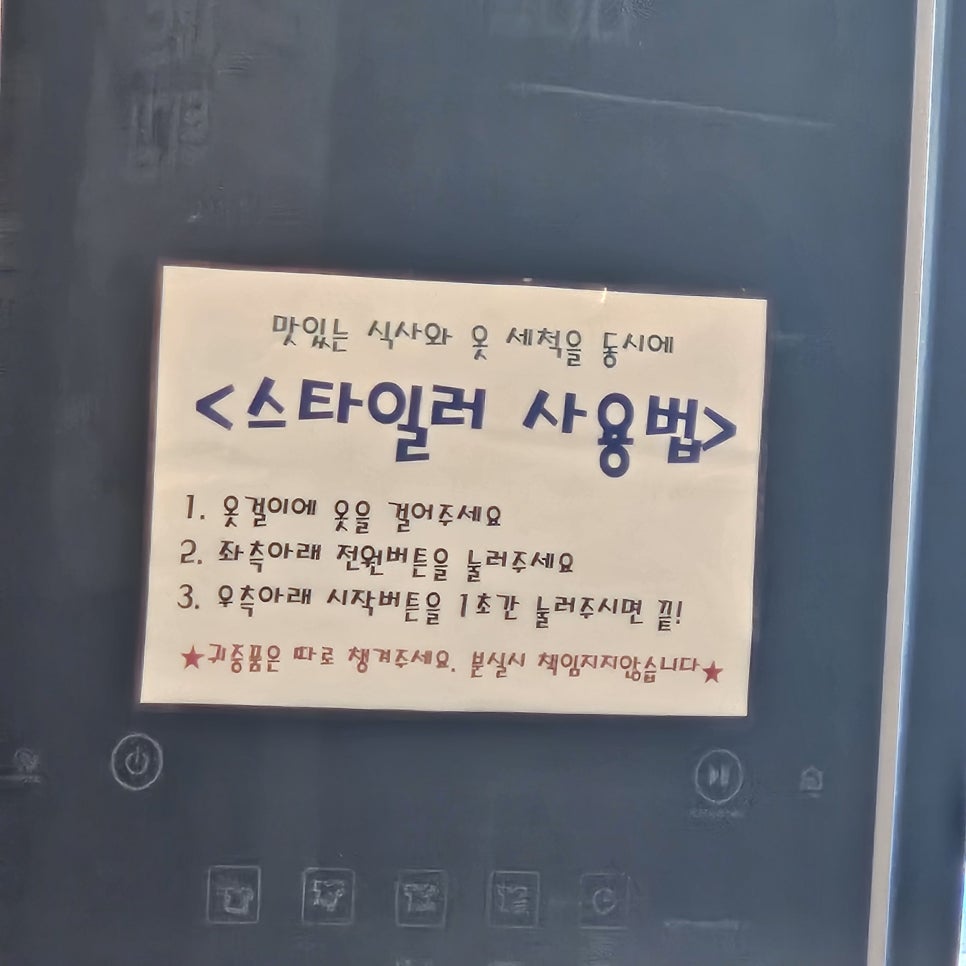 맛있는 식사와 옷 세척을 동시에
<스타일러 사용법>
1. 옷걸이에 옷을 걸어주세요
2. 좌측아래 전원버튼을 눌러주세요
3. 우측아래 시작버튼을 1초간 눌러주시면 끝!
★귀중품은 따로 챙겨주세요. 분실시 책임지지않습니다★